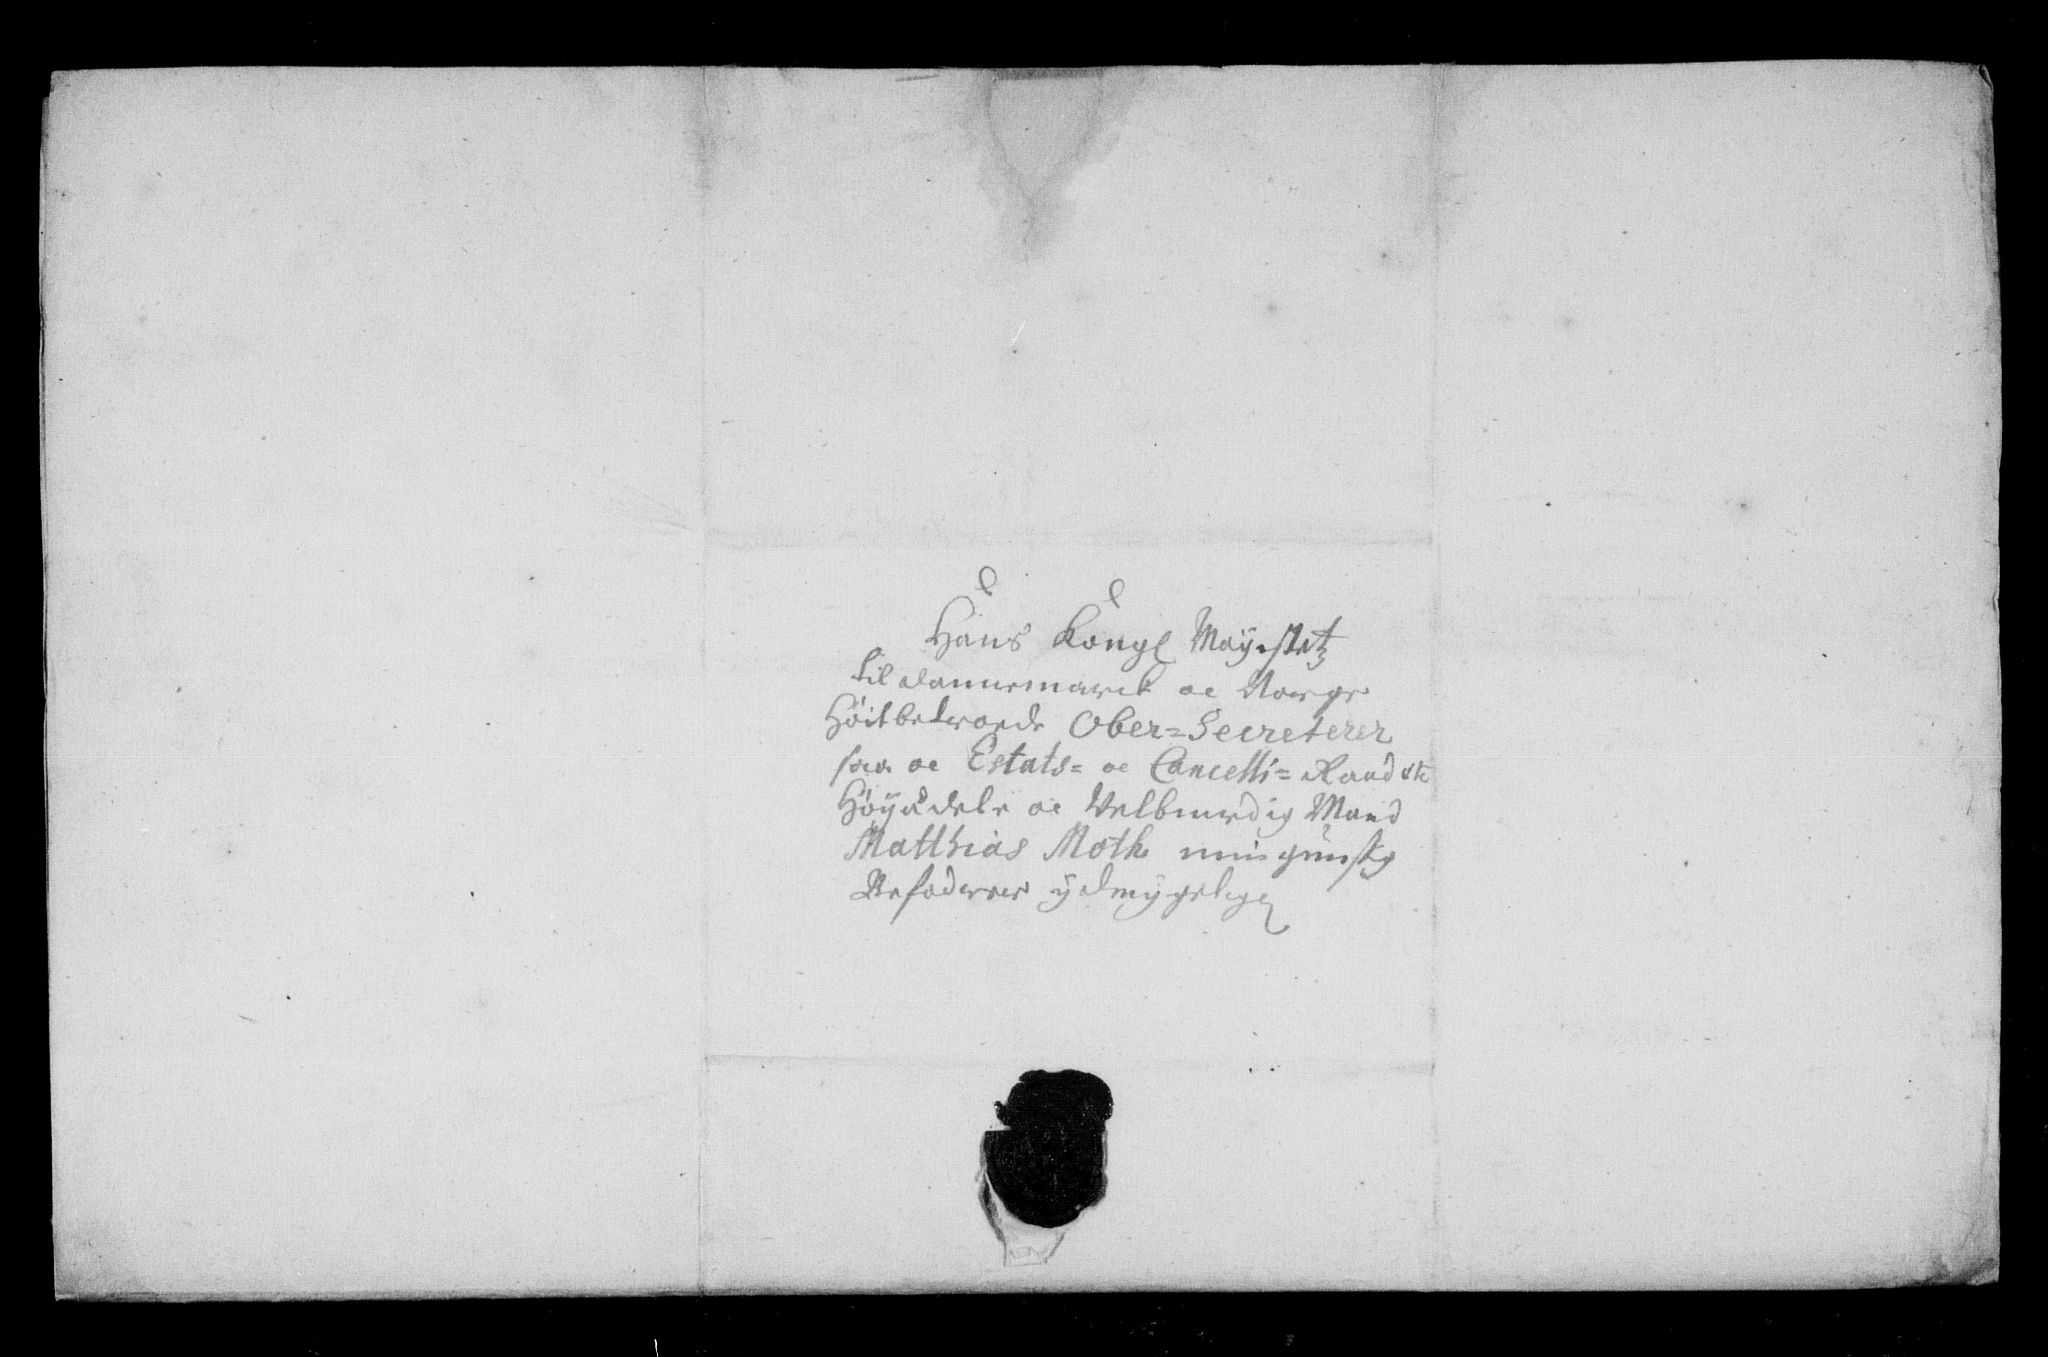 Hans Kongl Mayestetz
til Dannemarck oc Norge
Höitbetroede Ober=Secreterer
saa oc Estats= oc Cancelli= Raad etc
Höyædele oc Velbiurdig Mand
Matthias Moth min gunstig
Befodrer ydmygelig